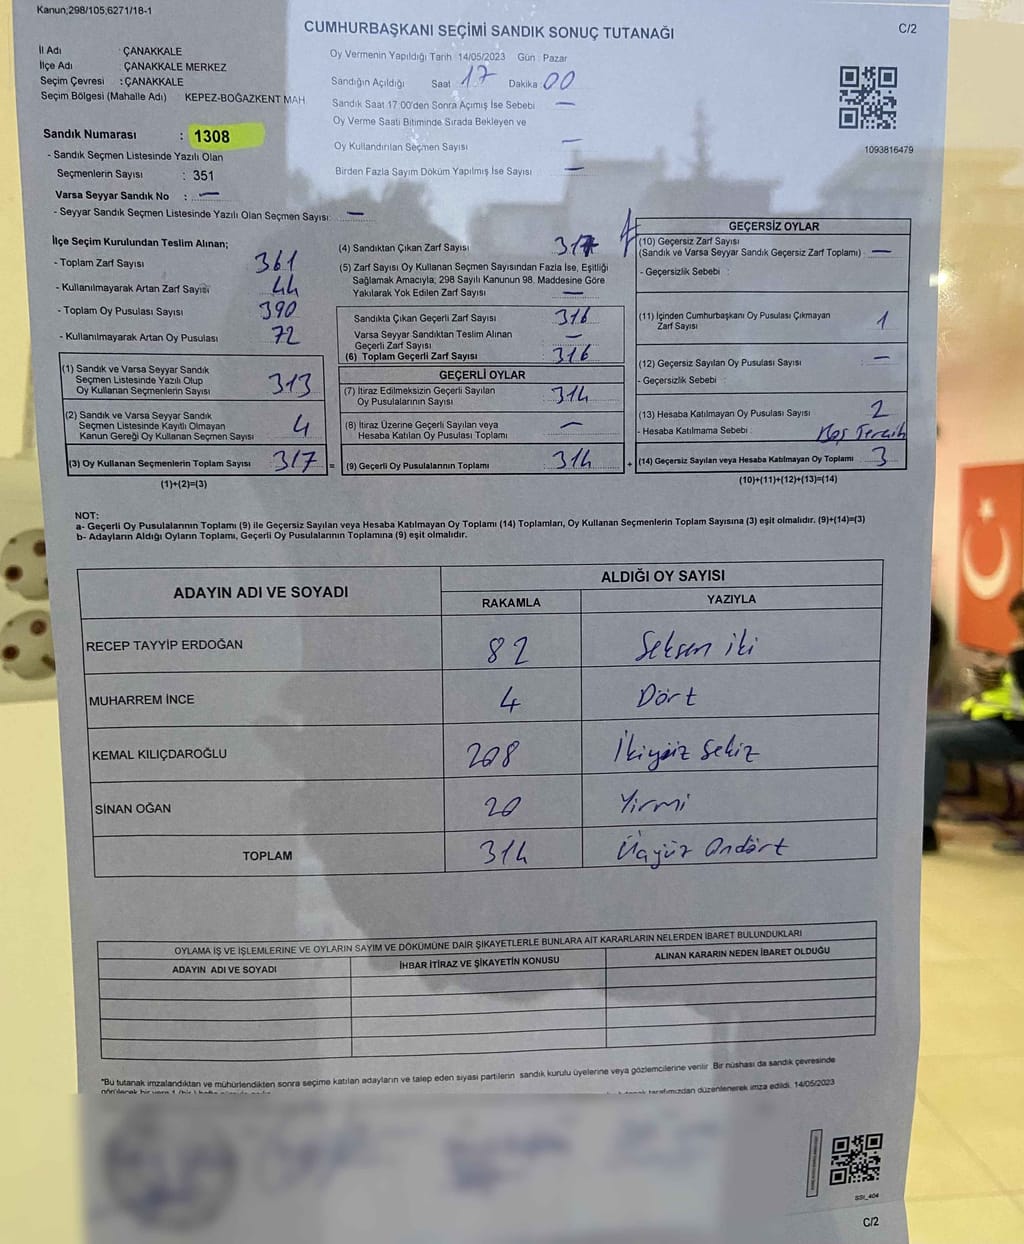 Kanun;298/105,6271/18-1
CUMHURBAŞKANI SEÇİMİ SANDIK SONUÇ TUTANAĞI
C/2
İl Adı : ÇANAKKALE
İlçe Adı : ÇANAKKALE MERKEZ
Seçim Çevresi : ÇANAKKALE
Seçim Bölgesi (Mahalle Adı) KEPEZ-BOĞAZKENT MAH
Sandık Numarası : 1308
- Sandık Seçmen Listesinde Yazılı Olan
Seçmenlerin Sayısı : 351
Varsa Seyyar Sandık No : —
- Seyyar Sandık Seçmen Listesinde Yazılı Olan Seçmen Sayısı: —
Oy Vermenin Yapıldığı Tarih 14/05/2023 Gün : Pazar
Sandığın Açıldığı Saat 17 Dakika 00
Sandık Saat 17 00'den Sonra Açımış İse Sebebi —
Oy Verme Saati Bitiminde Sırada Bekleyen ve
Oy Kullandırılan Seçmen Sayısı —
Birden Fazla Sayım Döküm Yapılmış İse Sayısı —
1093816479
İlçe Seçim Kurulundan Teslim Alınan;
- Toplam Zarf Sayısı 361
- Kullanılmayarak Artan Zarf Sayısı 44
- Toplam Oy Pusulası Sayısı 390
- Kullanılmayarak Artan Oy Pusulası 72
(1) Sandık ve Varsa Seyyar Sandık
Seçmen Listesinde Yazılı Olup
Oy Kullanan Seçmenlerin Sayısı 313
(2) Sandık ve Varsa Seyyar Sandık
Seçmen Listesinde Kayıtlı Olmayan
Kanun Gereği Oy Kullanan Seçmen Sayısı 4
(3) Oy Kullanan Seçmenlerin Toplam Sayısı 317 =
(1)+(2)=(3)
(4) Sandıktan Çıkan Zarf Sayısı 317
(5) Zarf Sayısı Oy Kullanan Seçmen Sayısından Fazla İse, Eşitliği
Sağlamak Amacıyla, 298 Sayılı Kanunun 98. Maddesine Göre
Yakılarak Yok Edilen Zarf Sayısı —
Sandıkta Çıkan Geçerli Zarf Sayısı 316
Varsa Seyyar Sandıktan Teslim Alınan
Geçerli Zarf Sayısı —
(6) Toplam Geçerli Zarf Sayısı 316
GEÇERLİ OYLAR
(7) İtiraz Edilmeksizin Geçerli Sayılan
Oy Pusulalarının Sayısı 314
(8) İtiraz Üzerine Geçerli Sayılan veya
Hesaba Katılan Oy Pusulası Toplamı —
(9) Geçerli Oy Pusulalarının Toplamı 314 +
GEÇERSİZ OYLAR
(10) Geçersiz Zarf Sayısı
(Sandık ve Varsa Seyyar Sandık Geçersiz Zarf Toplamı) : —
- Geçersizlik Sebebi :
(11) İçinden Cumhurbaşkanı Oy Pusulası Çıkmayan
Zarf Sayısı 1
(12) Geçersiz Sayılan Oy Pusulası Sayısı : —
- Geçersizlik Sebebi :
(13) Hesaba Katılmayan Oy Pusulası Sayısı 2
- Hesaba Katılmama Sebebi : Boş Tercih
(14) Geçersiz Sayılan veya Hesaba Katılmayan Oy Toplamı 3
(10)+(11)+(12)+(13)=(14)
NOT:
a- Geçerli Oy Pusulalarının Toplamı (9) ile Geçersiz Sayılan veya Hesaba Katılmayan Oy Toplamı (14) Toplamları, Oy Kullanan Seçmenlerin Toplam Sayısına (3) eşit olmalıdır. (9)+(14)=(3)
b- Adayların Aldığı Oyların Toplamı, Geçerli Oy Pusulalarının Toplamına (9) eşit olmalıdır.
ADAYIN ADI VE SOYADI ALDIĞI OY SAYISI
RAKAMLA YAZIYLA
RECEP TAYYİP ERDOĞAN 82 Seksen iki
MUHARREM İNCE 4 Dört
KEMAL KILIÇDAROĞLU 208 İkiyüz Sekiz
SİNAN OĞAN 20 Yirmi
TOPLAM 314 Üçyüz Ondört
OYLAMA İŞ VE İŞLEMLERİNE VE OYLARIN SAYIM VE DÖKÜMÜNE DAİR ŞİKAYETLERLE BUNLARA AİT KARARLARIN NELERDEN İBARET BULUNDUKLARI
ADAYIN ADI VE SOYADI İHBAR İTİRAZ VE ŞİKAYETİN KONUSU ALINAN KARARIN NEDEN İBARET OLDUĞU
*Bu tutanak imzalandıktan ve mühürlendikten sonra seçime katılan adayların ve talep eden siyasi partilerin sandık kurulu üyelerine ve gözlemcilerine verilir. Bir nüshası da sandık çevresinde
tarafımızdan düzenlenerek imza edildi. 14/05/2023
SSI_404
C/2